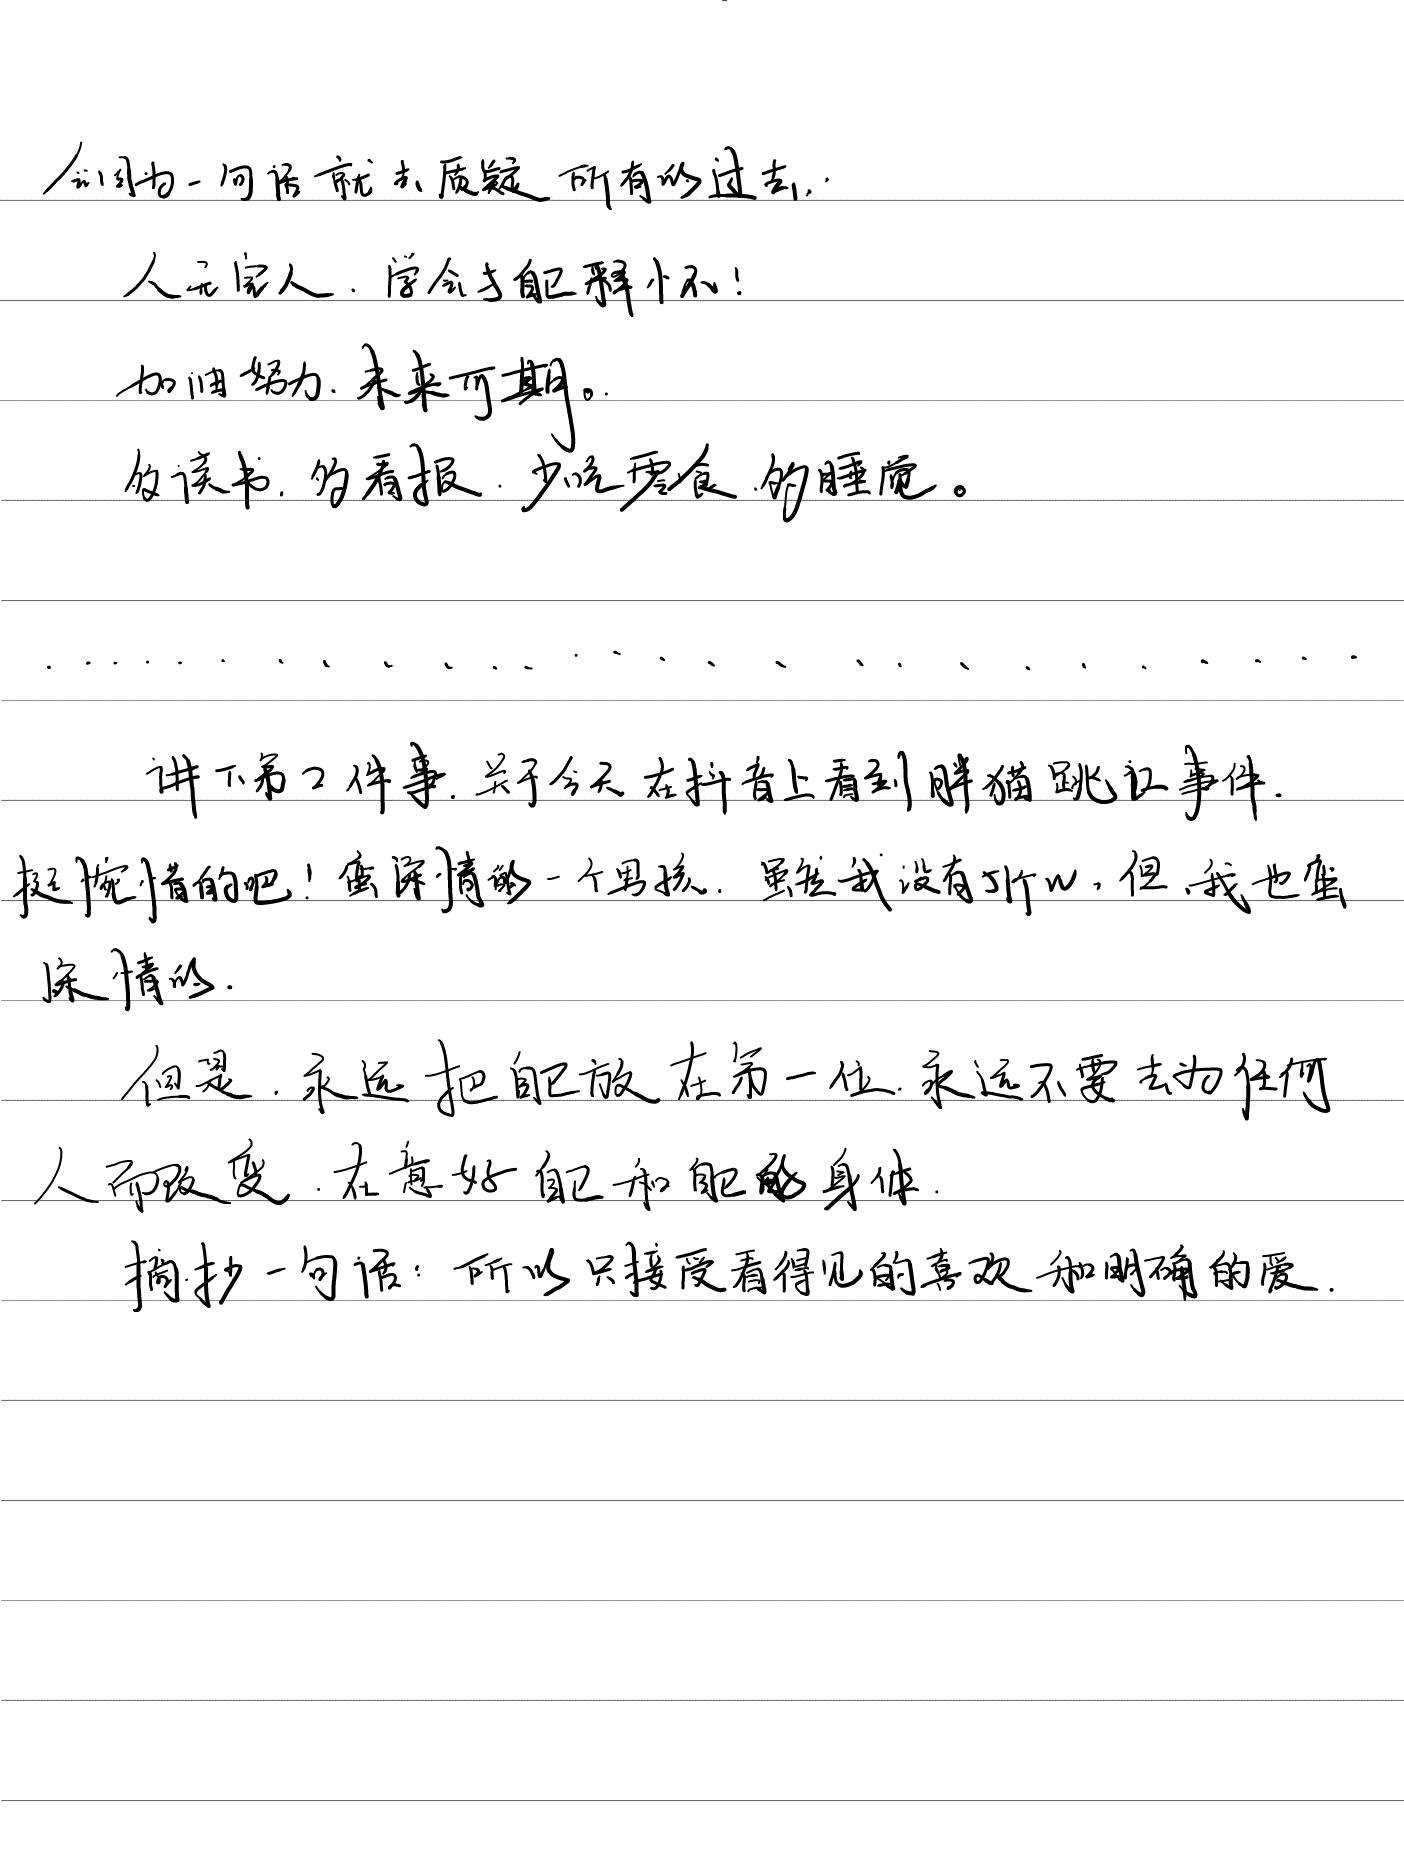 会因为一句话就去质疑所有的过去.
人无完人.学会与自己释怀!
加油努力.未来可期。
多读书.多看报.少吃零食.多睡觉。
讲下第2件事.关于今天在抖音上看到胖猫跳江事件.
挺惋惜的吧!蛮深情的一个男孩.虽然我没有51个W,但我也蛮
深情的.
但是.永远把自己放在第一位.永远不要去为任何
人而改变.在意好自己和自己的身体.
摘抄一句话:所以只接受看得见的喜欢和明确的爱.